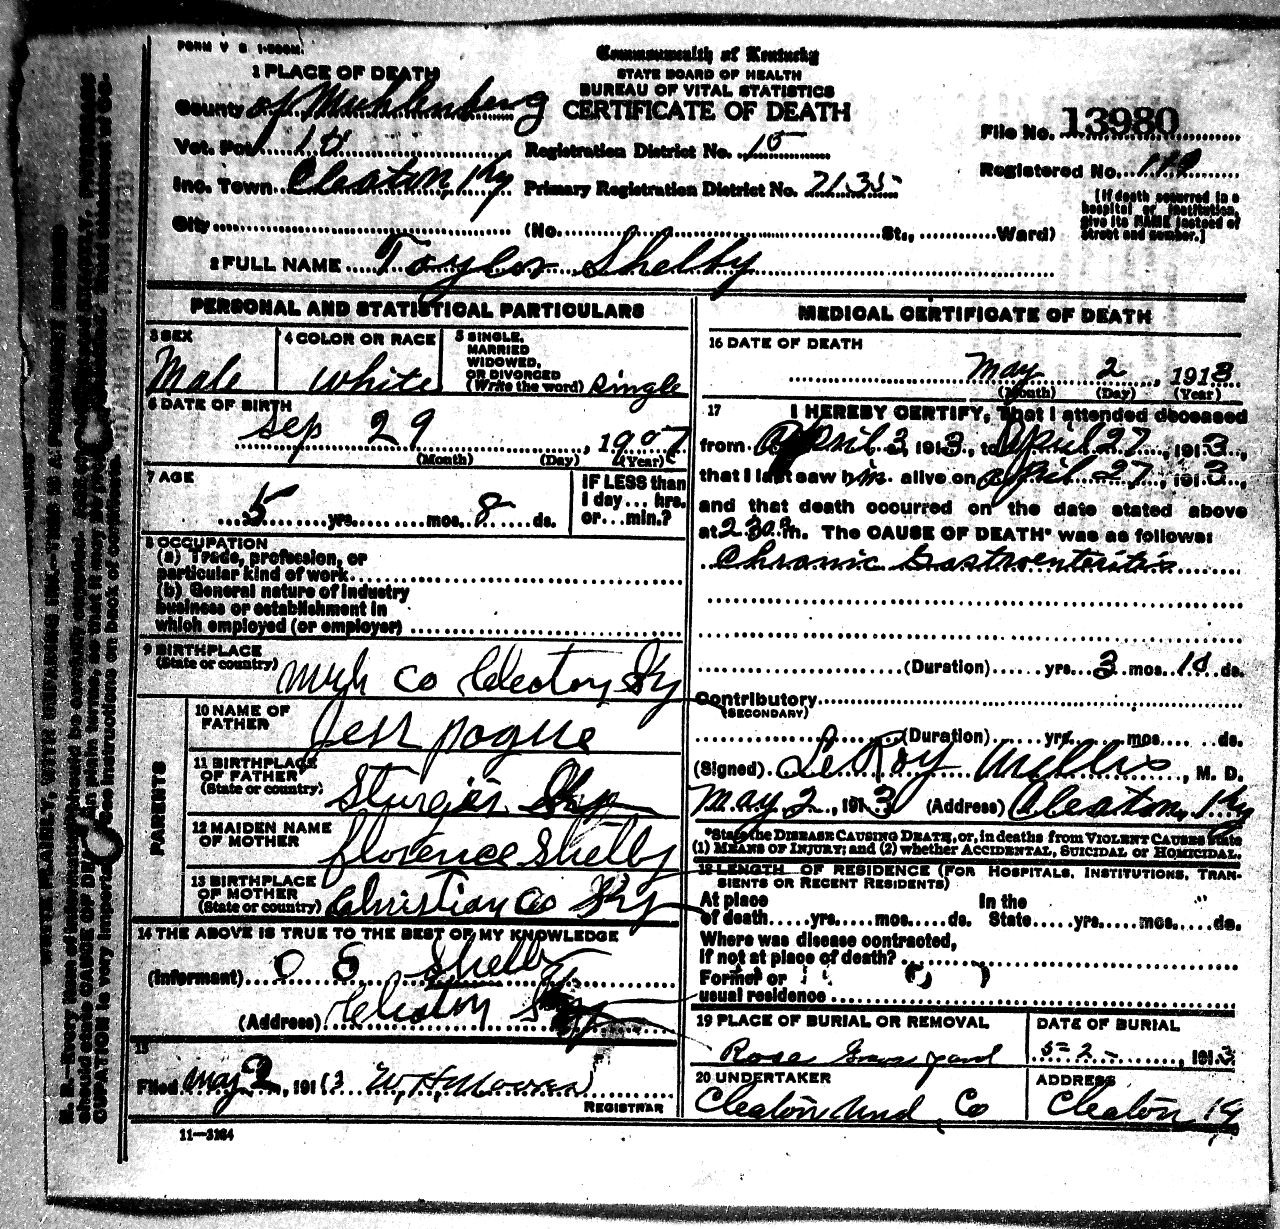 FORM V S 1-500M.
Commonwealth of Kentucky
STATE BOARD OF HEALTH
BUREAU OF VITAL STATISTICS
CERTIFICATE OF DEATH
1 PLACE OF DEATH
County of Muhlenberg
Vot. Pct
Inc. Town Cleaton, Ky
City
Registration District No. 15
Primary Registration District No. 7135
(No. St., Ward)
File No. 13980
Registered No.
[If death occurred in a
hospital or institution,
give its NAME instead of
street and number.]
2 FULL NAME Taylor Shelby
PERSONAL AND STATISTICAL PARTICULARS
3 SEX
Male
4 COLOR OR RACE
White
5 SINGLE,
MARRIED
WIDOWED,
OR DIVORCED
(Write the word) Single
6 DATE OF BIRTH
Sep 29, 1907
(Month) (Day) (Year)
7 AGE
5 yrs. mos. 8 ds.
IF LESS than
1 day... hrs.
or...min.?
8 OCCUPATION
(a) Trade, profession, or
particular kind of work
(b) General nature of industry
business or establishment in
which employed (or employer)
9 BIRTHPLACE
(State or country) Muh Co Cleaton Ky
PARENTS
10 NAME OF
FATHER Jess pogue
11 BIRTHPLACE
OF FATHER
(State or country) Sturgis Ky
12 MAIDEN NAME
OF MOTHER florence Shelby
13 BIRTHPLACE
OF MOTHER
(State or country) Christian Co Ky
14 THE ABOVE IS TRUE TO THE BEST OF MY KNOWLEDGE
(Informant) O S Shelby
(Address) Cleaton Ky
15
Filed May 2, 1913 W, H,
REGISTRAR
11—3184
MEDICAL CERTIFICATE OF DEATH
16 DATE OF DEATH
May 2, 1913
(Month) (Day) (Year)
17 I HEREBY CERTIFY, That I attended deceased
from April 3, 1913, to April 27, 1913,
that I last saw him alive on April 27, 1913,
and that death occurred on the date stated above
at 2.30 a m. The CAUSE OF DEATH* was as follows:
Chronic Gastroenteritis
(Duration) yrs. 3 mos. 10 ds.
Contributory
(SECONDARY)
(Duration) yrs. mos. ds.
(Signed) LeRoy Willis, M. D.
May 2, 1913 (Address) Cleaton, Ky
*State the DISEASE CAUSING DEATH, or, in deaths from VIOLENT CAUSES state
(1) MEANS OF INJURY; and (2) whether ACCIDENTAL, SUICIDAL or HOMICIDAL.
18 LENGTH OF RESIDENCE (FOR HOSPITALS, INSTITUTIONS, TRAN-
SIENTS OR RECENT RESIDENTS)
At place In the
of death yrs. mos. ds. State yrs. mos. ds.
Where was disease contracted,
if not at place of death?
Former or
usual residence
19 PLACE OF BURIAL OR REMOVAL
Rose Grave yard
DATE OF BURIAL
5-2-, 1913
20 UNDERTAKER
Cleaton Und Co
ADDRESS
Cleaton Ky